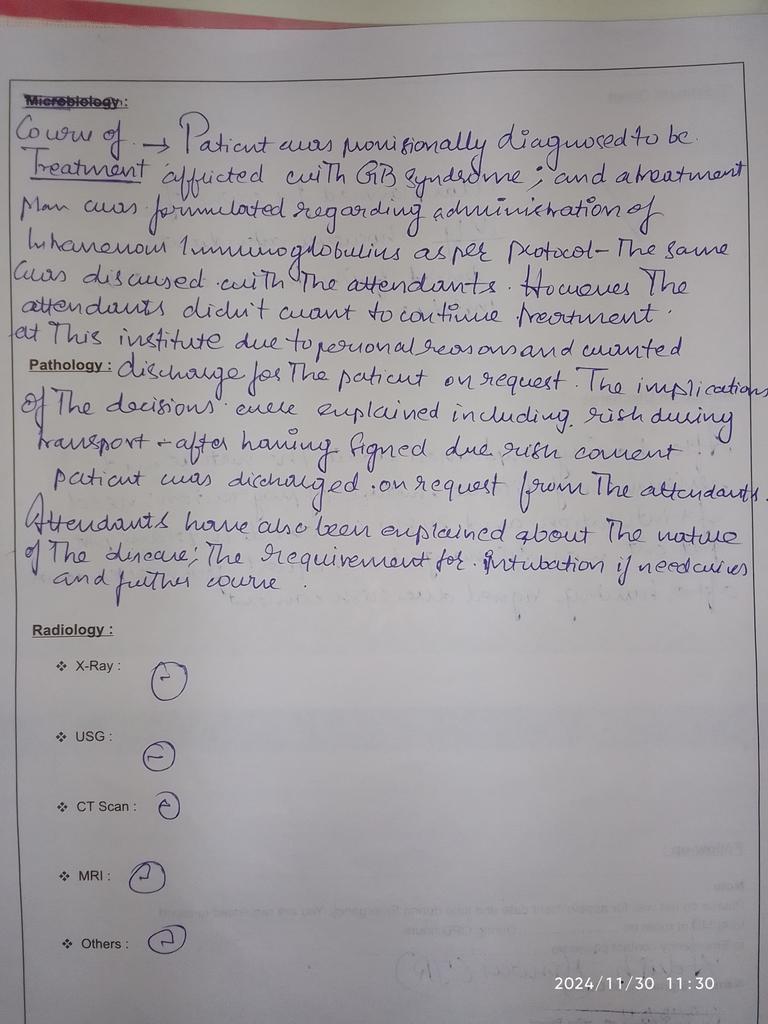 Microbiology :
Course of → Patient was provisionally diagnosed to be
Treatment afflicted with GB syndrome ; and a treatment
plan was formulated regarding administration of
Intravenous Immunoglobulins as per protocol - The same
was discussed with The attendants. However The
attendants didn't want to continue treatment
at This institute due to personal reasons and wanted
Pathology : discharge for The patient on request. The implications
of The decisions were explained including risk during
transport - after having signed due risk consent
patient was discharged on request from The attendants.
Attendants have also been explained about The nature
of The disease; The requirement for intubation if need arises
and further course.
Radiology :
❖ X-Ray :
❖ USG :
❖ CT Scan :
❖ MRI :
❖ Others :
2024/11/30 11:30